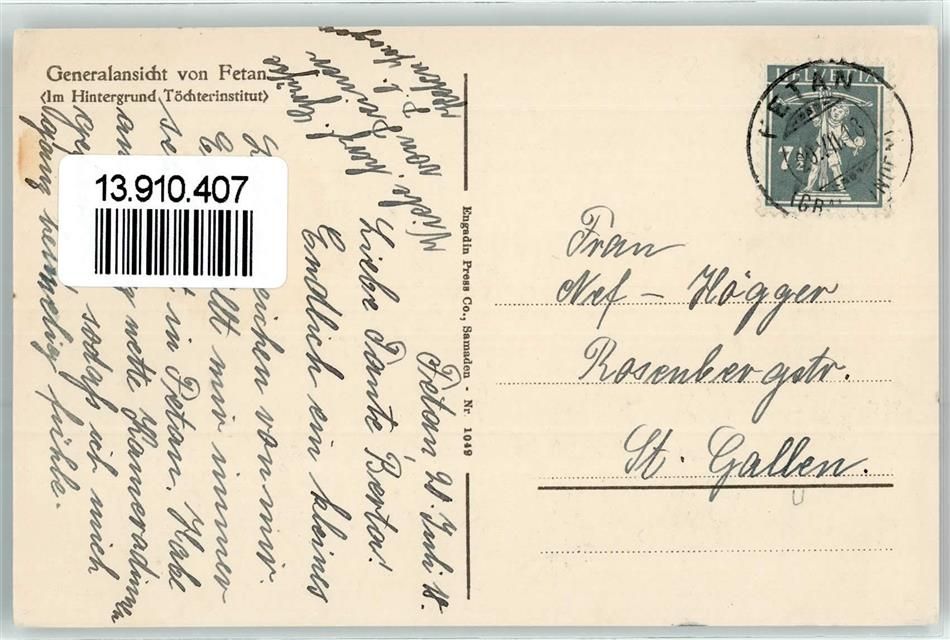 Generalansicht von Fetan
(Im Hintergrund Töchterinstitut)
13.910.407
Engadin Press Co., Samaden - Nr. 1049
HELVETIA
7½
FETAN
Frau
Nef - Högger
Rosenbergstr.
St. Gallen.
Fetan 20. Juli 18.
Liebe Tante Berta!
Endlich ein kleines
eichen von mir.
llt mir immer
in Fetan. Habe
nette Kameradinnen
sodaß ich mich
heimelig fühle.
Viele
von
herzl. Grüße